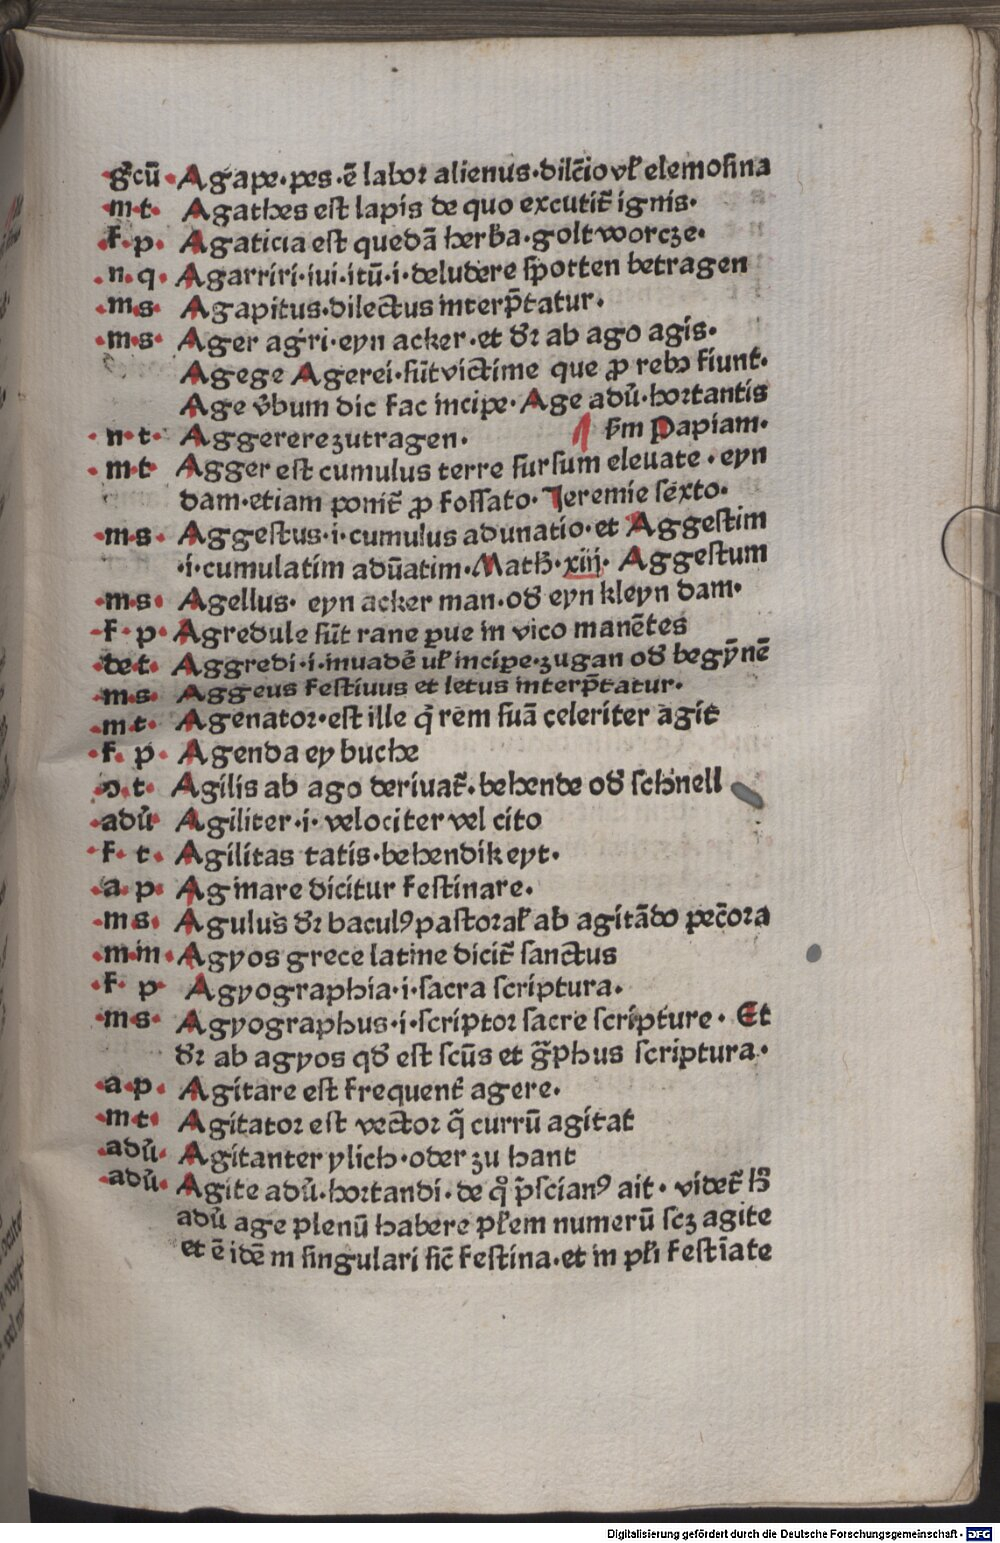 ·g̊cū· Agape·pes·ē labor alienus·dilc̄io vl̓ elemosina
·m·t· Agathes est lapis de quo excutit̄ ignis·
·f·p· Agaticia est quedā herb̄a·goltworcze·
·n·q· Agarriri·iui·itū·i·deludere spotten betragen
·m·s· Agapitus·dilectus interp̄tatur·
·m·s· Ager agri·eyn acker·et dr̄ ab ago agis·
Agege Agerei·sūt victime que ꝓ rebꝫ fiunt·
Age v̄bum dic fac incipe·Age adū·hortantis
·n·t· Aggerere zutragen· ¶ s̄m Papiam·
·m·t Agger est cumulus terre sursum eleuate·eyn
dam·etiam ponit̄ ꝓ fossato·Jeremie sexto·
·m·s· Aggestus·i·cumulus adunatio·et Aggestim
·i·cumulatim adūatim·Math̄·xiij· Aggestum
·m·s· Agellus· eyn acker man·od̄ eyn kleyn dam·
·f·p· Agredule sūt rane ꝑue in vico manētes
·de·t· Aggredi·i·inuadē vl̓ incipe·zugan od̄ begȳnē
·m·s· Aggeus festiuus et letus interp̄tatur·
·m·t· Agenator·est ille q̇ rem suā celeriter agit
·f· p· Agenda ey buche
·o·t· Agilis ab ago deriuat̄·behende od̄ schnell
·adū· Agiliter·i· velociter vel cito
·f· t· Agilitas tatis·behendikeyt·
·a·p· Aginare dicitur festinare·
·m s· Agulus dr̄ baculꝰ pastoral̓ ab agitādo pec̄ora
·m·m· Agyos grece latine dicit̄ sanctus
·f· p· Agyographia·i·sacra scriptura·
·m·s· Agyographus·i·scriptor sacre scripture· Et
dr̄ ab agyos qd̄ est scūs et g̃phus scriptura·
·a·p· Agitare est frequent̄ agere·
·m·t· Agitator est vector q̄ currū agitat
·adū· Agitanter ylich·oder zu hant
·adū· Agite adū·hortandi·de q̊ p̄scianꝰ ait· videt̄ h̄
adū age plenū habere pl̓em numerū scꝫ agite
et ē idē in singulari sic̄ festina·et in pl̓i festīate
Digitalisierung gefördert durch die Deutsche Forschungsgemeinschaft · DFG